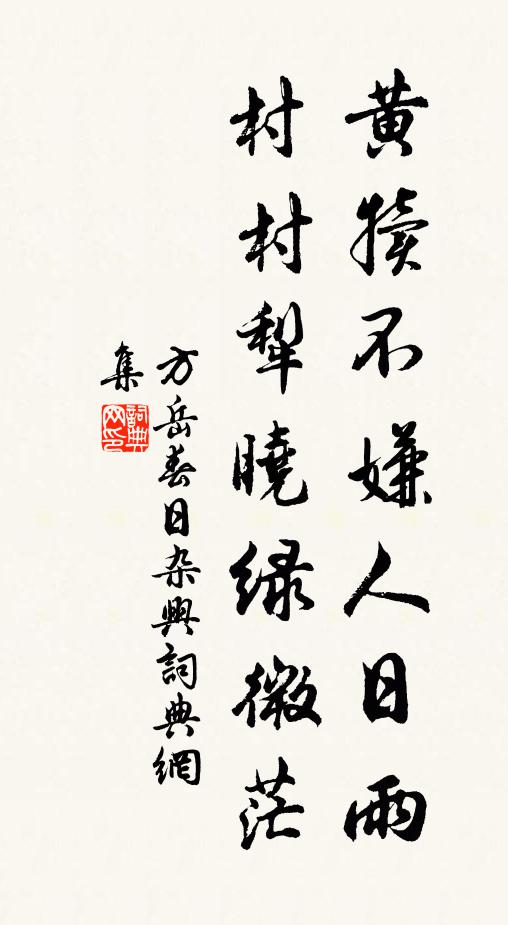 黄犊不嫌人日雨
村村犁曉緑微茫
方岳春日杂興詞典網
集
詞典网印